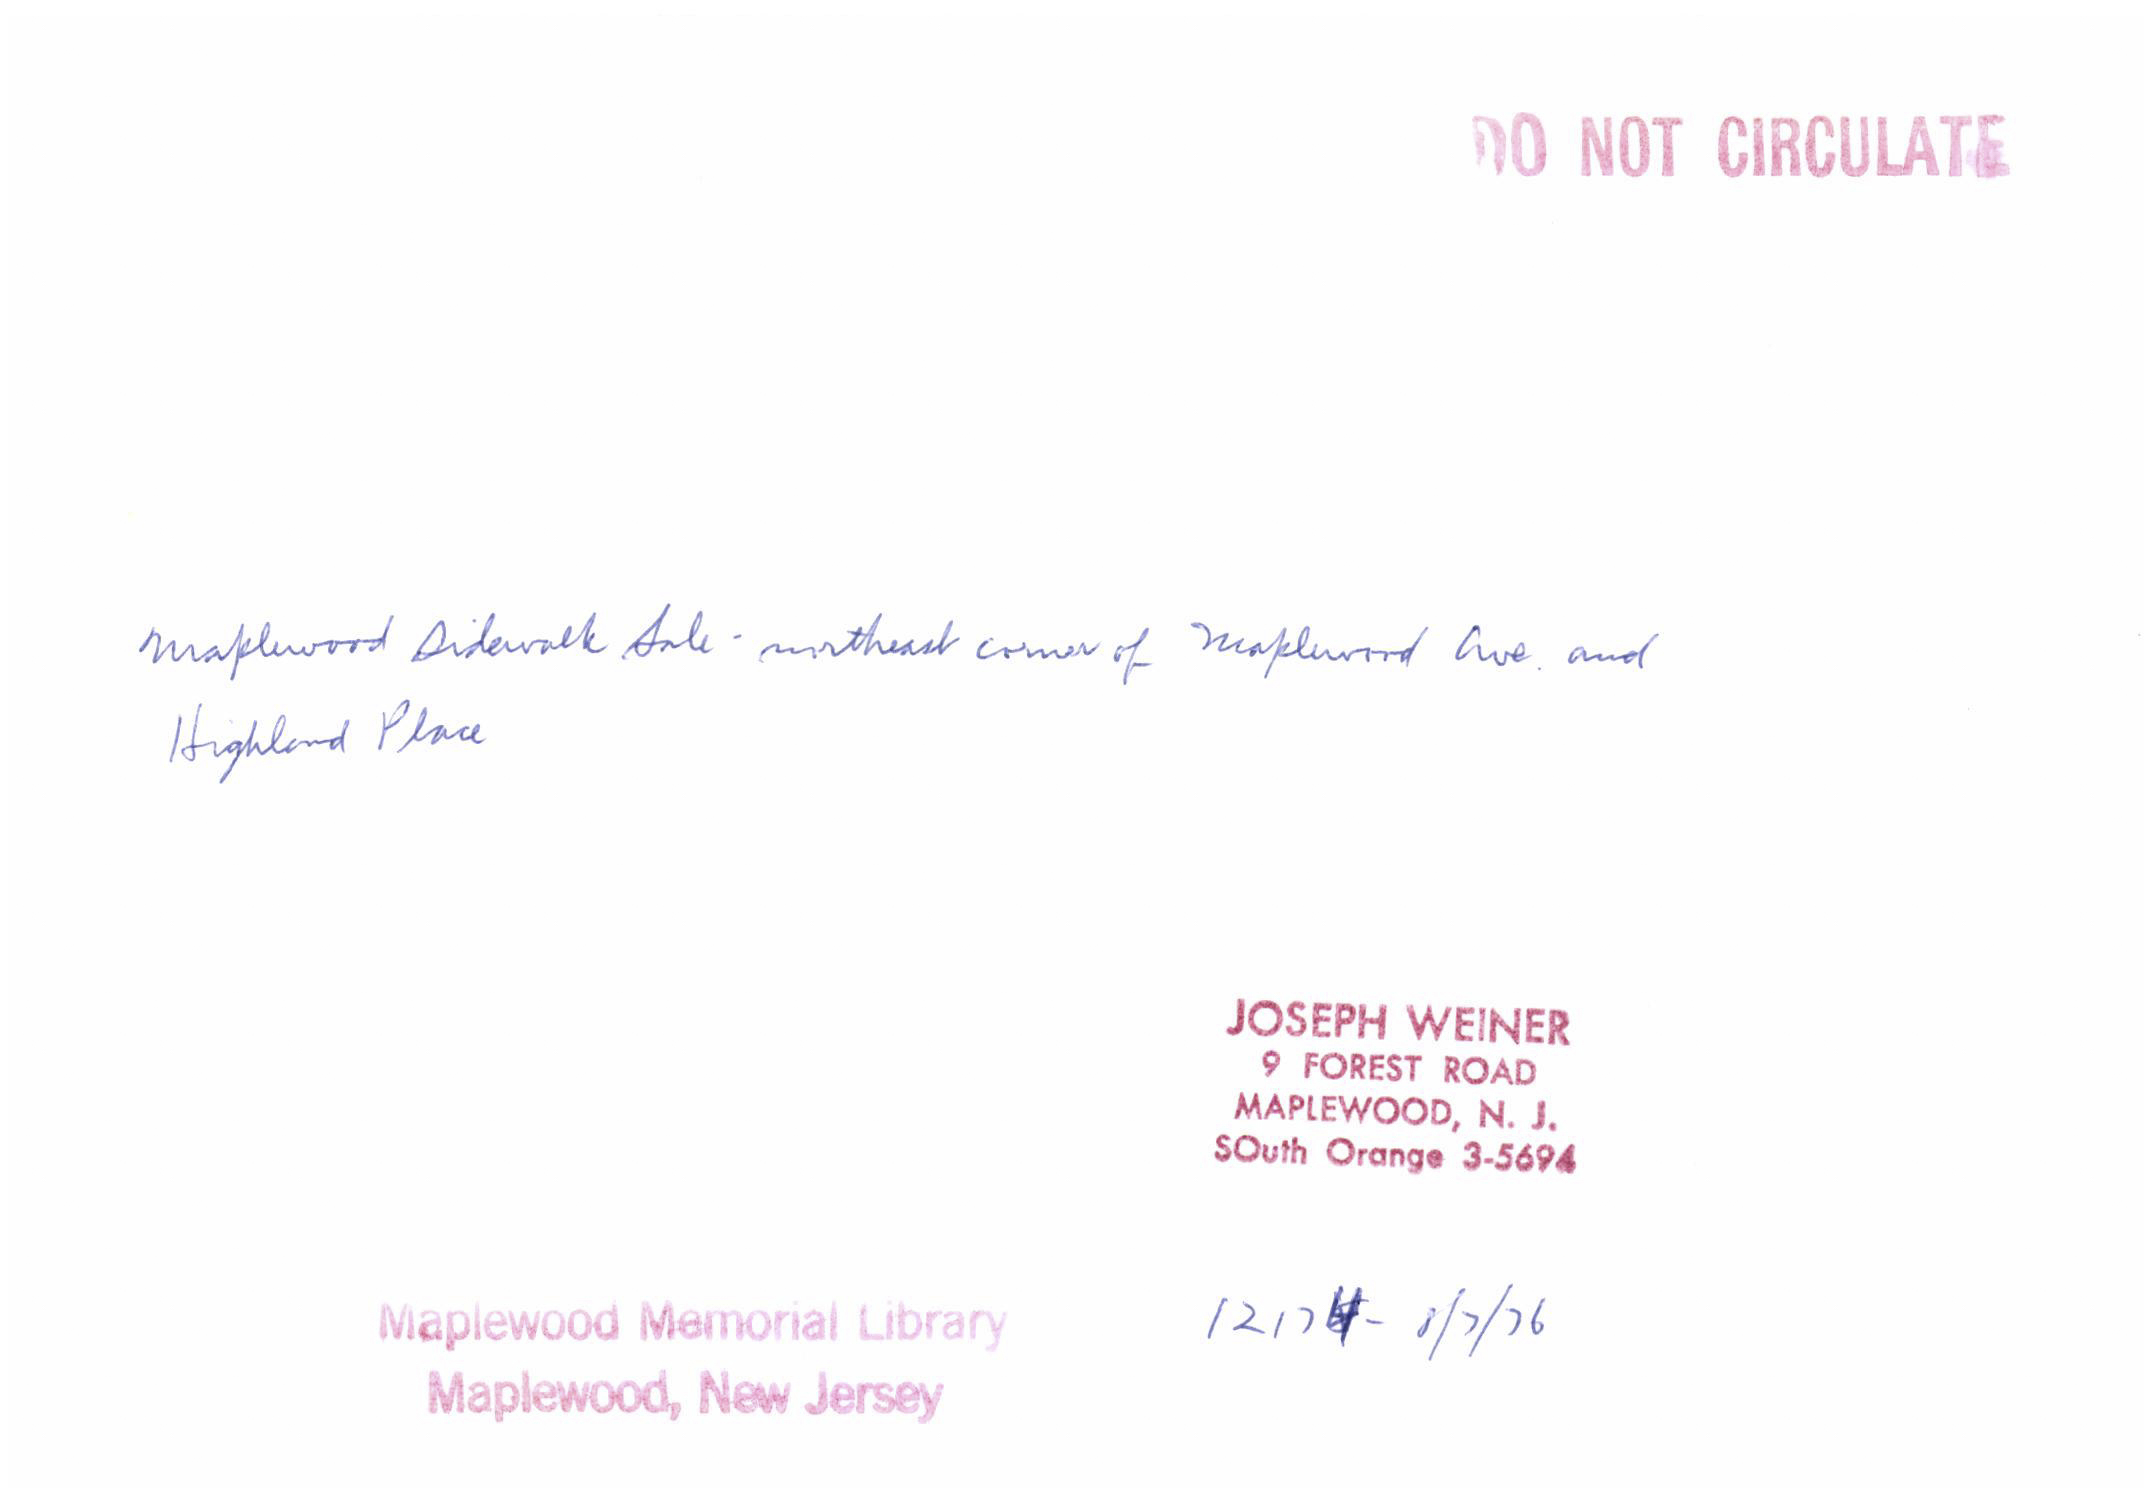 DO NOT CIRCULATE
Maplewood Sidewalk Sale - northeast corner of Maplewood Ave. and
Highland Place
JOSEPH WEINER
9 FOREST ROAD
MAPLEWOOD, N. J.
SOuth Orange 3-5694
Maplewood Memorial Library
Maplewood, New Jersey
8/7/76